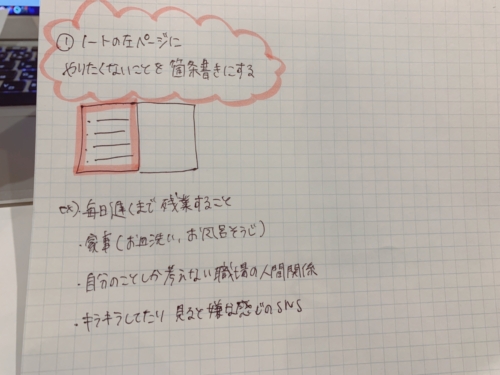 ① ノートの左ページに
やりたくないことを箇条書きにする
ex)・毎日遅くまで残業すること
・家事(お皿洗い、お風呂そうじ)
・自分のことしか考えない職場の人間関係
・キラキラしてたり 見ると嫌な感じのSNS